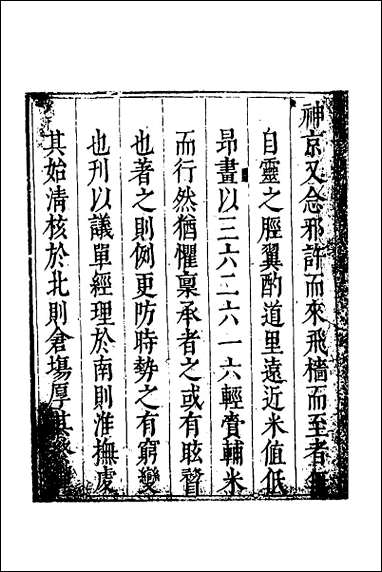 神京又念邪許而來飛檣而至者
自靈之脛翼酌道里遠近米值低
昻畫以三六二六一六輕賫輔米
而行然猶懼稟承者之或有眩瞀
也著之則例更防時勢之有窮變
也刋以議單經理於南則淮撫虔
其始清核於北則倉塲厚其